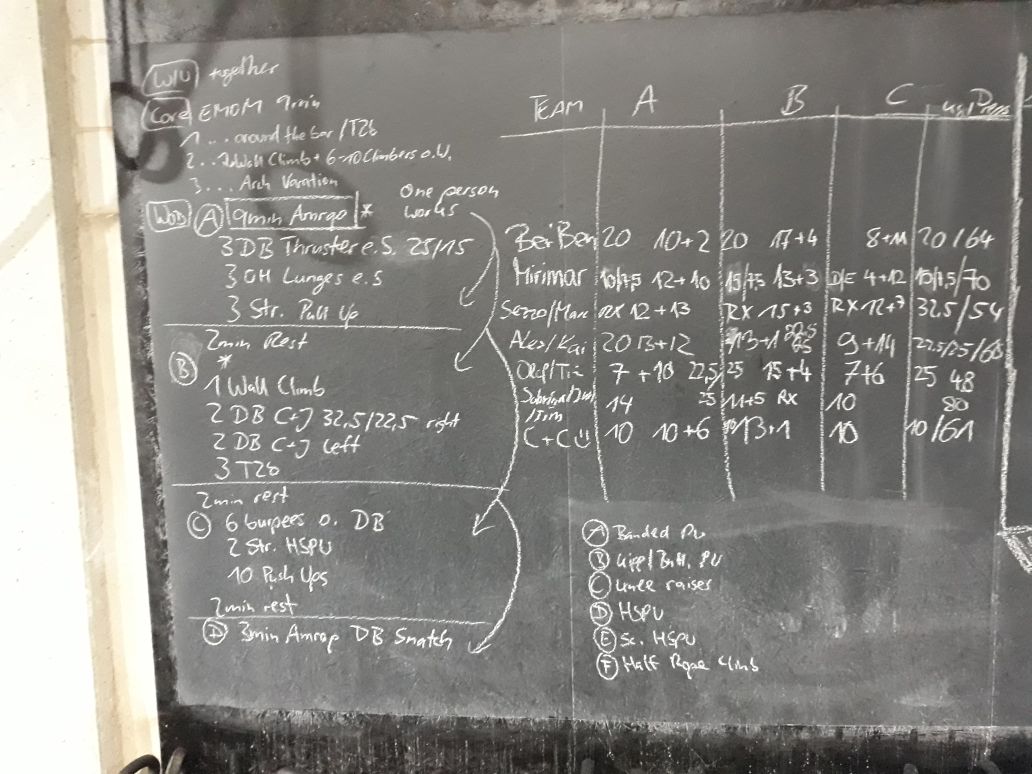 W/U together
Core EMOM 9min
1... around the bar / T2b
2... 2 Wall Climb + 6-10 Climbers o.W.
3... Arch Varation
One person works
WOD A 9min Amrap *
3 DB Thruster e.S. 25/15
3 OH Lunges e.s
3 Str. Pull Up
2min Rest
B *
1 Wall Climb
2 DB C+J 32,5/22,5 right
2 DB C+J left
3 T2b
2min rest
C 6 burpees o. DB
2 Str. HSPU
10 Push Ups
2min rest
D 3min Amrap DB Snatch
TEAM A B C
Bei/Ben 20 10+2 20 17+4 8+11 20/64
Mirimar 10/7,5 12+10 15/7,5 13+3 D/E 4+12 10/7,5/70
RX 12+13 RX 15+3 RX 12+7 32,5/54
Alex/Kai 20 13+12 13+1 9+14
7+10 22,5/25 15+4 7+6 25 48
14 25 11+5 RX 10 80
C+C 10 10+6 13+1 10 10/61
A Banded PU
B Kipp/Butt. PU
C Knee raises
D HSPU
E Sc. HSPU
F Half Rope Climb